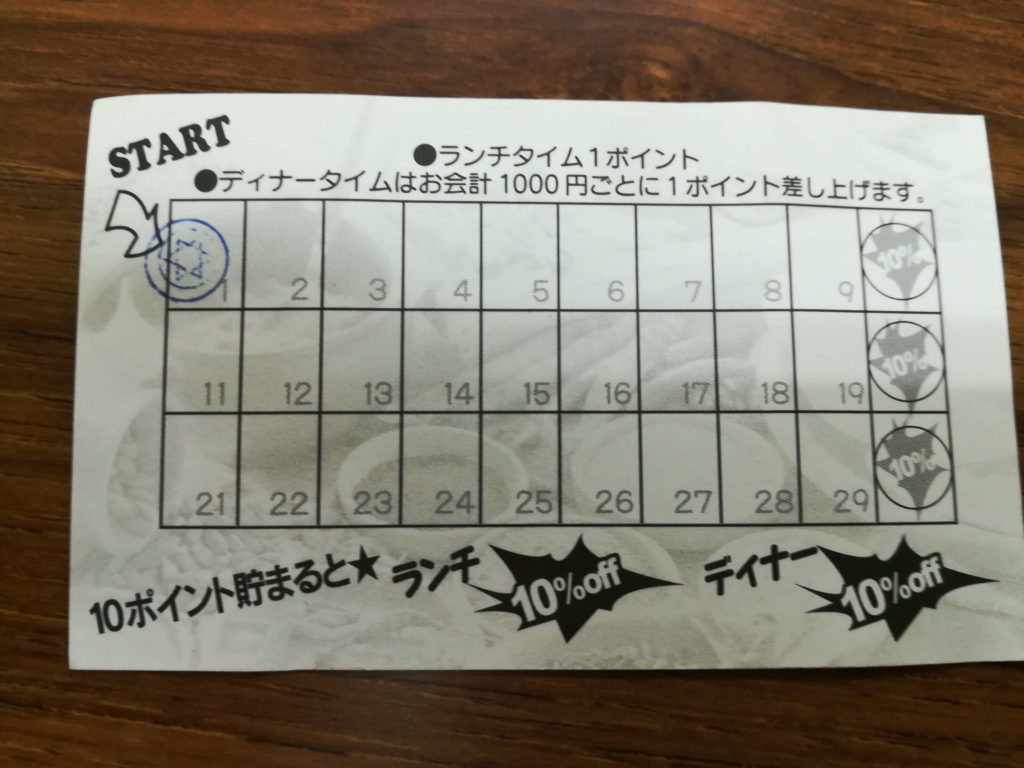 START
●ランチタイム1ポイント
●ディナータイムはお会計1000円ごとに1ポイント差し上げます。
1 2 3 4 5 6 7 8 9 10%
11 12 13 14 15 16 17 18 19 10%
21 22 23 24 25 26 27 28 29 10%
10ポイント貯まると★ ランチ 10%off ディナー 10%off